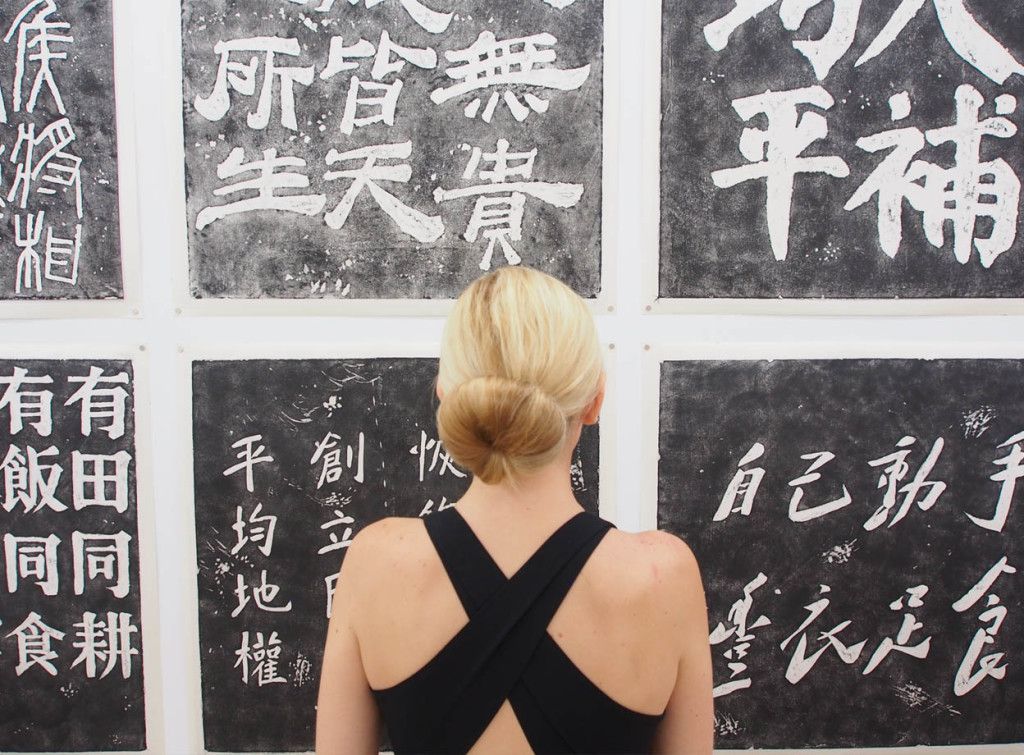 侯將相
無貴
皆天
所生
補
平
有田同耕
有飯同食
恢
創立
平均地權
自己動手
豐衣足食